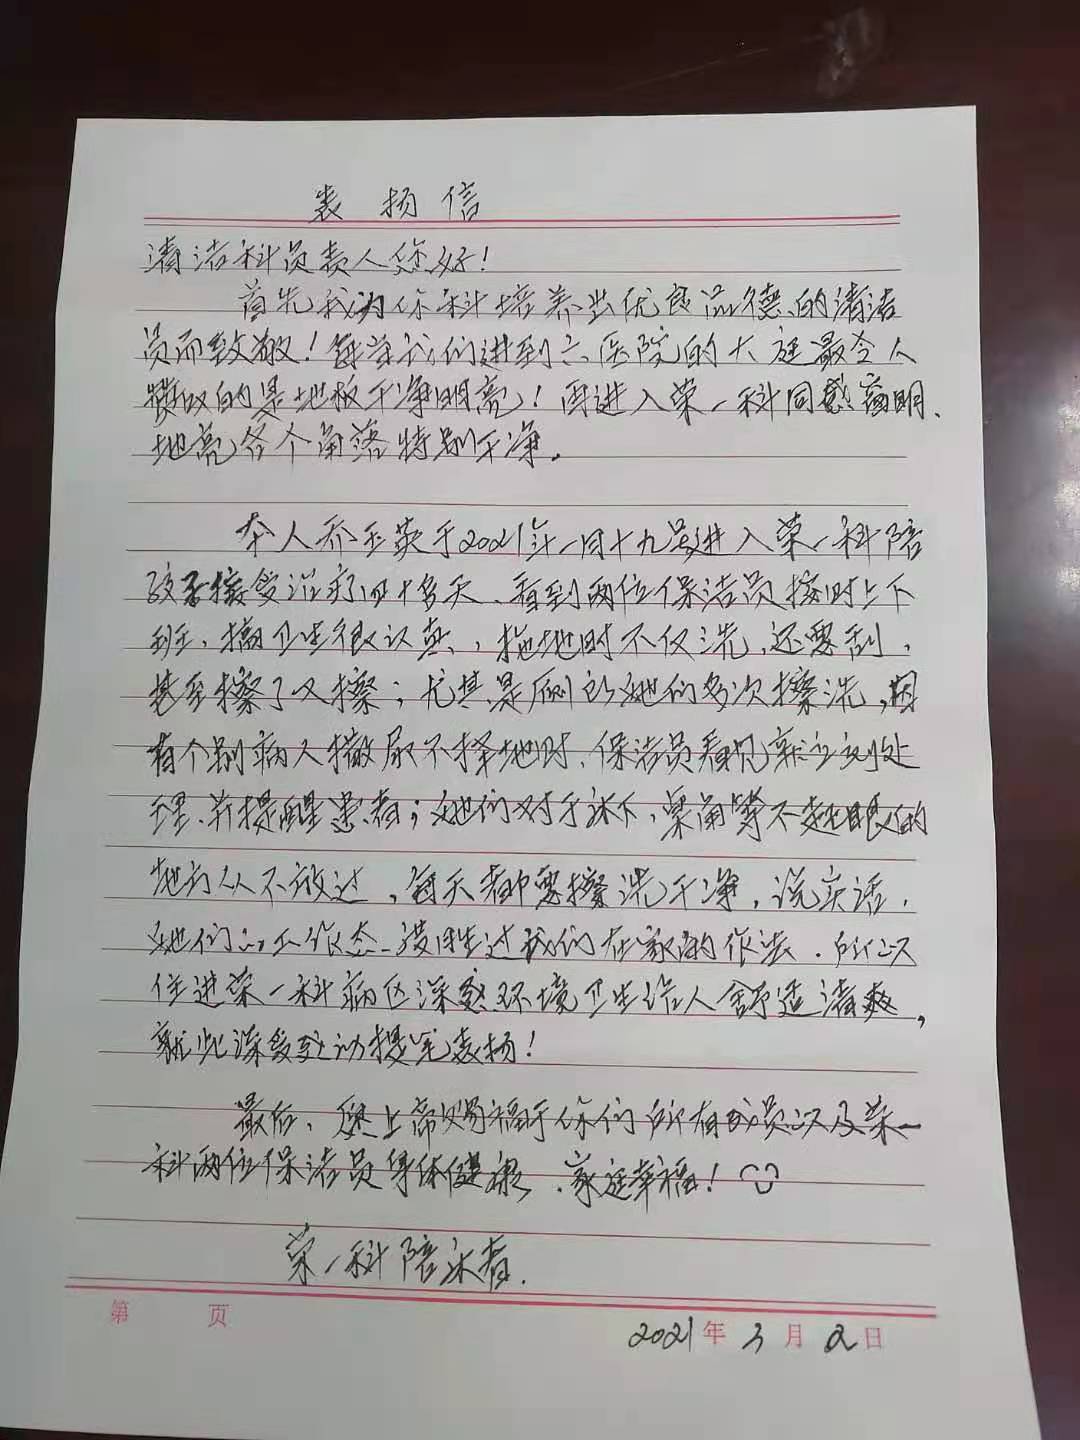 表扬信
清洁科负责人您好!
首先我为你科培养出优良品德的清洁
员而致敬!每当我们进到六医院的大庭最令人
的是地板干净明亮!再进入荣一科同感窗明、
地亮各个角落特别干净。
本人乔玉英于2021年一月十九号进入荣一科陪
孩子接受治疗四十多天、看到两位保洁员按时上下
班、搞卫生很认真、拖地时不仅洗、还要刮、
甚至擦了又擦;尤其是厕所她们多次擦洗,因
有个别病人撒尿不择地时、保洁员看见就立刻处
理、并提醒患者;她们对于床下,桌角等不起眼的
地方从不放过,每天都要擦洗干净,说实话、
她们的工作态度胜过我们在家的作法.所以
住进荣一科病区深感环境卫生给人舒适清爽,
就此深受感动提笔表扬!
最后、愿上帝赐福于你们所有成员以及荣一
科两位保洁员身体健康、家庭幸福!
荣一科陪床者.
第 页
2021年3月2日